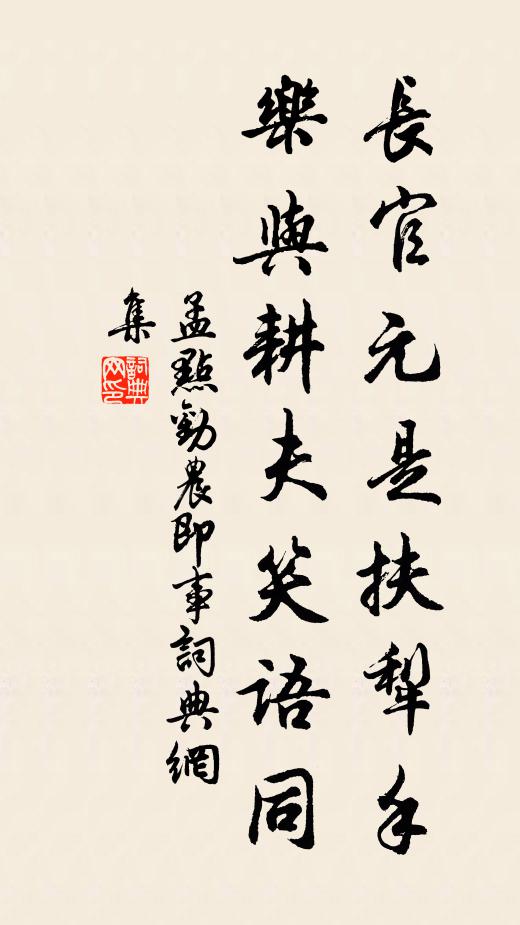 長官元是扶犁手
樂與耕夫笑語同
孟點勸農即事詞典網
集
詞典
網印